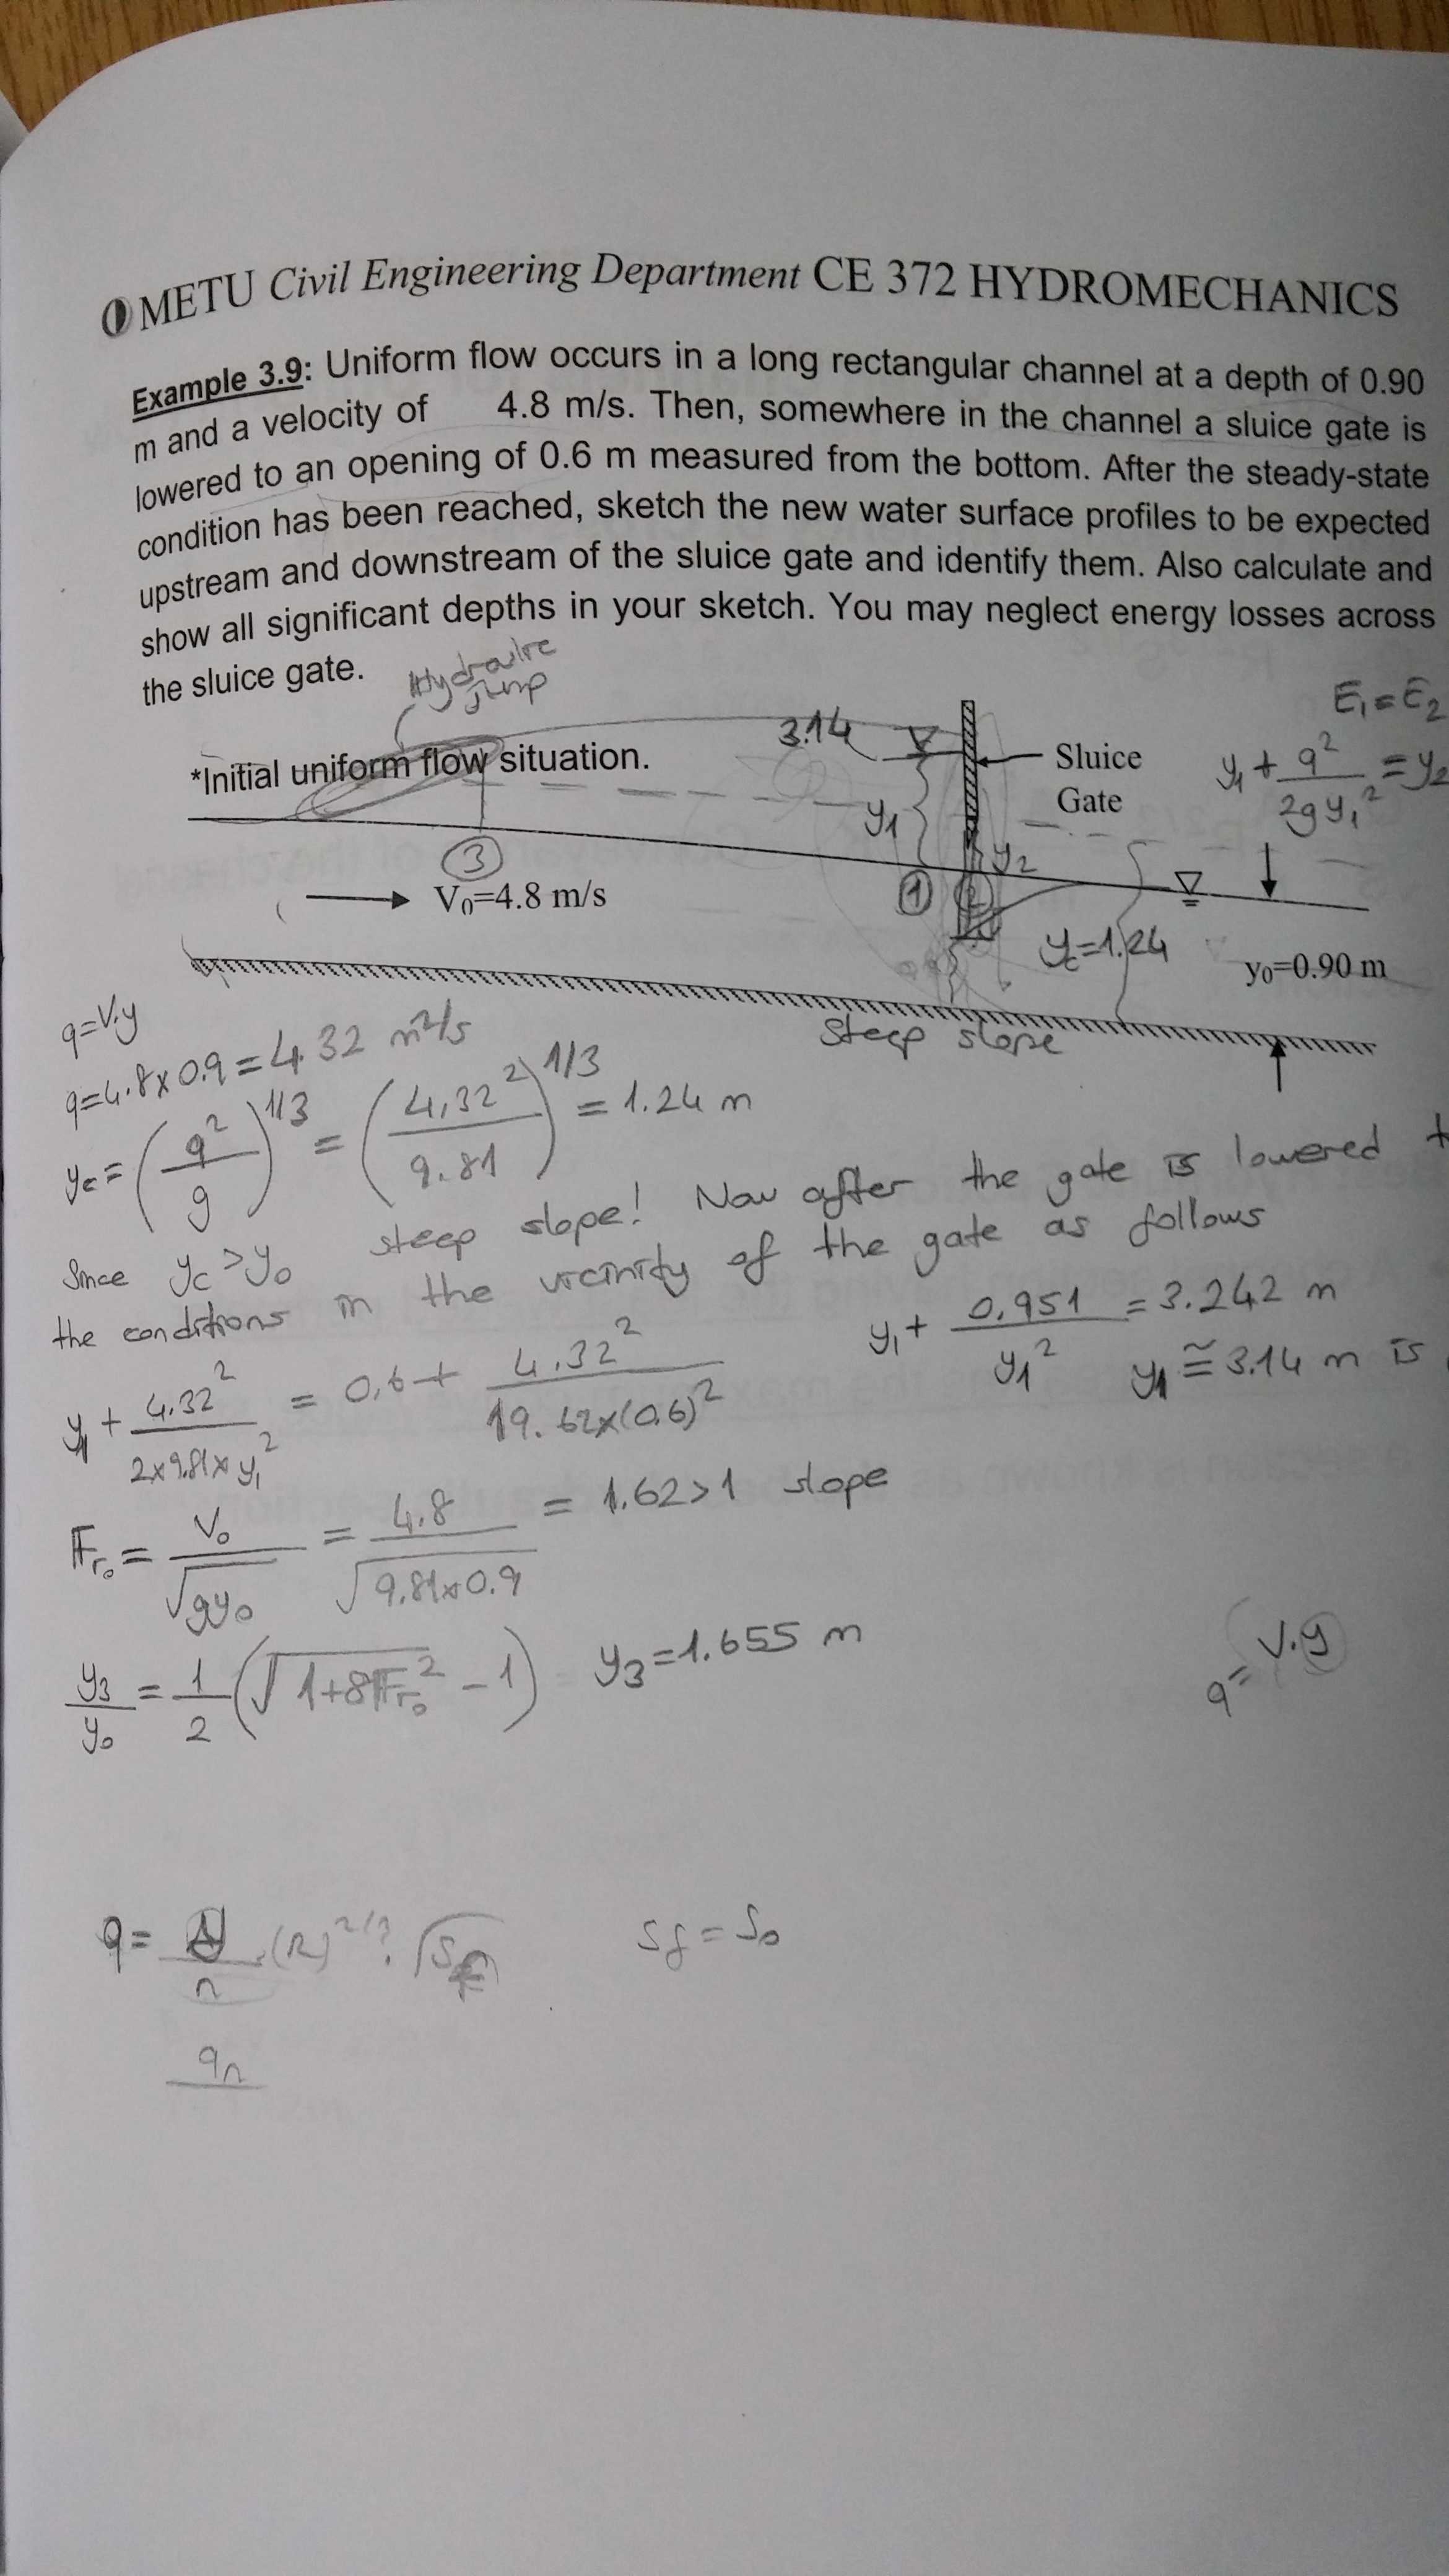 METU Civil Engineering Department CE 372 HYDROMECHANICS
Example 3.9: Uniform flow occurs in a long rectangular channel at a depth of 0.90
m and a velocity of 4.8 m/s. Then, somewhere in the channel a sluice gate is
lowered to an opening of 0.6 m measured from the bottom. After the steady-state
condition has been reached, sketch the new water surface profiles to be expected
upstream and downstream of the sluice gate and identify them. Also calculate and
show all significant depths in your sketch. You may neglect energy losses across
the sluice gate.
Hydraulic
Jump
E₁=E₂
*Initial uniform flow situation.
3.14
Sluice
Gate
y₁ + q²/2gy₁² = y₂
y₁
y₂
3
1
2
V₀=4.8 m/s
yc=1.24
y₀=0.90 m
steep slope
q=V.y
q=4.8x0.9=4.32 m²/s
yc=(q²/g)^1/3 = (4.32²/9.81)^1/3 = 1.24 m
Since yc>y₀ steep slope! Now after the gate is lowered
the conditions in the vicinity of the gate as follows
y₁+ 4.32²/2x9.81xy₁² = 0.6+ 4.32²/19.62x(0.6)²
y₁+ 0.951/y₁² = 3.242 m
y₁ ≅ 3.14 m is
Fr₀ = V₀/√gy₀ = 4.8/√9.81x0.9 = 1.62>1 slope
y₃/y₀ = 1/2 (√1+8Fr₀² - 1) y₃=1.655 m
q= V.y
q= /n .(R)^2/3 . √Sf
Sf = S₀
qn